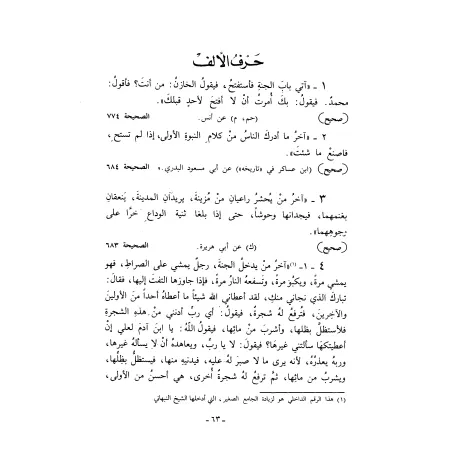 حَرفُ الألِف
١ - «آتي بابَ الجنةِ فأستفتحُ، فيقولُ الخازنُ: من أنتَ؟ فأقولُ:
محمدٌ. فيقولُ: بكَ أُمرتُ أنْ لا أفتحَ لأحدٍ قبلكَ».
(صحيح) (حم، م) عن أنس. الصحيحة ٧٧٤
٢ - «آخرُ ما أدركَ الناسُ منْ كلامِ النبوةِ الأولى، إذا لم تستحِ،
فاصنعْ ما شئتَ».
(صحيح) (ابن عساكر في «تاريخه») عن أبي مسعود البدري. الصحيحة ٦٨٤
٣ - «آخرُ منْ يُحشرُ راعيانِ منْ مُزينةَ، يريدَانِ المدينةَ، يَنعِقانِ
بغنمِهما، فيجدانِها وحوشاً، حتى إذا بلغَا ثنيةَ الوداعِ خرَّا على
وجوهِهما».
(صحيح) (ك) عن أبي هريرة. الصحيحة ٦٨٣
٤ - ١ -(١) «آخرُ منْ يدخلُ الجنةَ، رجلٌ يمشي على الصراطِ، فهو
يمشي مرةً، ويكبُو مرةً، وتسفعهُ النارُ مرةً، فإذا جاوزَها التفتَ إليها، فقالَ:
تباركَ الذي نجاني منكِ، لقد أعطاني اللهُ شيئاً ما أعطاهُ أحداً من الأولينَ
والآخرينَ، فتُرفعُ لهُ شجرةٌ، فيقولُ: أي ربِّ أدنني منْ هذهِ الشجرةِ
فلأستظلَّ بظلِها، وأشربَ منْ مائِها، فيقولُ اللهُ: يا ابنَ آدمَ لعلي إنْ
أعطيتكهَا سألتني غيرَها؟ فيقولُ: لا يا ربِّ، ويعاهدهُ أنْ لا يسألَهُ غيرَها،
وربهُ يعذرُهُ، لأنه يرى ما لا صبرَ لهُ عليه، فيدنيهِ منها، فيستظلُّ بظلِّها،
ويشربُ من مائِها، ثمَّ تُرفعُ لهُ شجرةٌ أخرى، هي أحسنُ من الأولى،
(١) هذا الرقم الداخلي هو لزيادة الجامع الصغير، التي أدخلها الشيخ النبهاني
- ٦٣ -